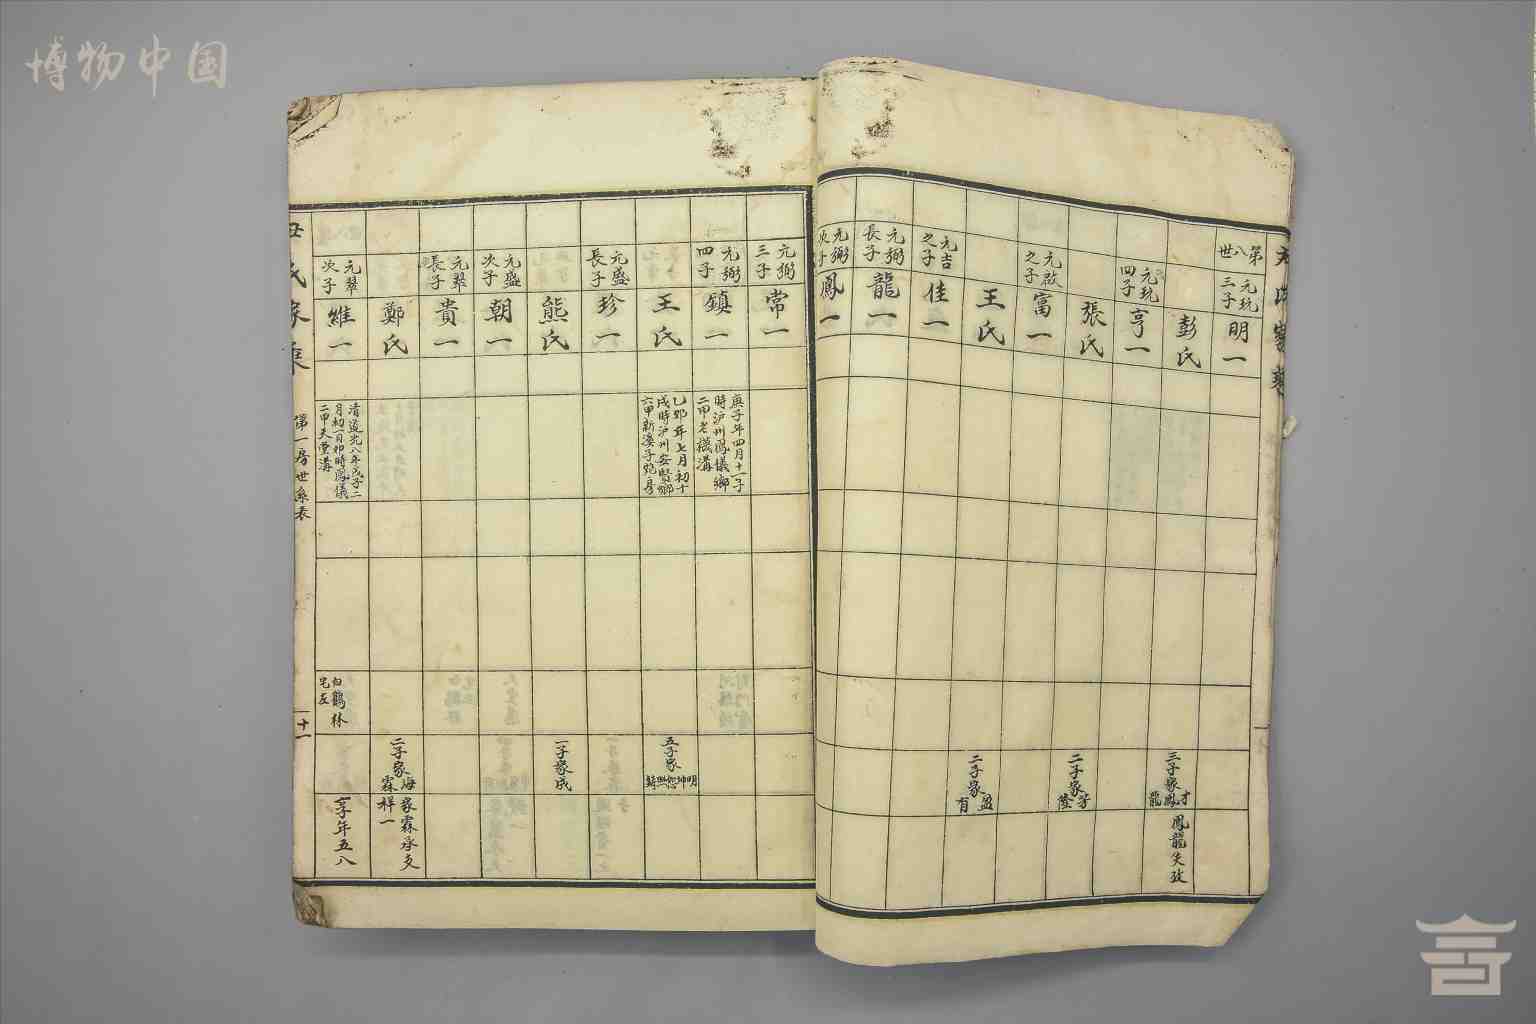 博物中国
第八世
元玩三子
明一
彭氏
三子家才鳳龍
鳳龍失攷
元玩四子
亨一
張氏
二子家
元啟之子
富一
王氏
二子家盈有
元吉之子
佳一
元弼長子
龍一
元弼次子
鳳一
元弼三子
常一
元弼四子
鎮一
庚子年四月十一子
時瀘州鳳儀鄉
二甲老
王氏
乙卯年七月初十
戌時瀘州安賢鄉
六甲新溪子
五子家明坤
元盛長子
珍一
熊氏
一子家成
元盛次子
朝一
元翠長子
貴一
鄭氏
二子家海霖
家霖承支
祥一
元翠次子
維一
清道光八年戊子二
月初一日卯時鳳儀
二甲天堂溝
白鶴林
宅左
一子年五八
氏家乘
第一房世系表
十一